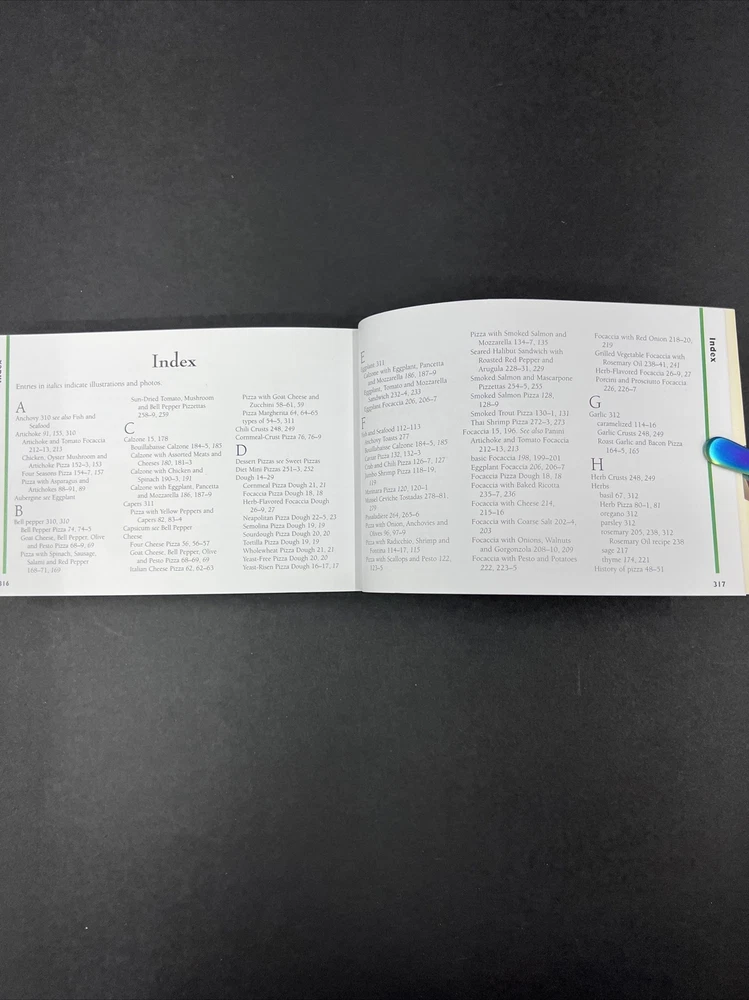 Index
Entries in italics indicate illustrations and photos.
A
Anchovy 310 see also Fish and
Seafood
Artichoke 91, 155, 310
Artichoke and Tomato Focaccia
212–13, 213
Chicken, Oyster Mushroom and
Artichoke Pizza 152–3, 153
Four Seasons Pizza 154–7, 157
Pizza with Asparagus and
Artichokes 88–91, 89
Aubergine see Eggplant
B
Bell pepper 310, 310
Bell Pepper Pizza 74, 74–5
Goat Cheese, Bell Pepper, Olive
and Pesto Pizza 68–9, 69
Pizza with Spinach, Sausage,
Salami and Red Pepper
168–71, 169
Sun-Dried Tomato, Mushroom
and Bell Pepper Pizzettas
258–9, 259
C
Calzone 15, 178
Bouillabaisse Calzone 184–5, 185
Calzone with Assorted Meats and
Cheeses 180, 181–3
Calzone with Chicken and
Spinach 190–3, 191
Calzone with Eggplant, Pancetta
and Mozzarella 186, 187–9
Capers 311
Pizza with Yellow Peppers and
Capers 82, 83–4
Capsicum see Bell Pepper
Cheese
Four Cheese Pizza 56, 56–57
Goat Cheese, Bell Pepper, Olive
and Pesto Pizza 68–69, 69
Italian Cheese Pizza 62, 62–63
Pizza with Goat Cheese and
Zucchini 58–61, 59
Pizza Margherita 64, 64–65
types of 54–5, 311
Chili Crusts 248, 249
Cornmeal-Crust Pizza 76, 76–9
D
Dessert Pizzas see Sweet Pizzas
Diet Mini Pizzas 251–3, 252
Dough 14–29
Cornmeal Pizza Dough 21, 21
Focaccia Pizza Dough 18, 18
Herb-Flavored Focaccia Dough
26–9, 27
Neapolitan Pizza Dough 22–5, 23
Semolina Pizza Dough 19, 19
Sourdough Pizza Dough 20, 20
Tortilla Pizza Dough 19, 19
Wholewheat Pizza Dough 21, 21
Yeast-Free Pizza Dough 20, 20
Yeast-Risen Pizza Dough 16–17, 17
316
E
Eggplant 311
Calzone with Eggplant, Pancetta
and Mozzarella 186, 187–9
Eggplant, Tomato and Mozzarella
Sandwich 232–4, 233
Eggplant Focaccia 206, 206–7
F
Fish and Seafood 112–113
Anchovy Toasts 277
Bouillabaisse Calzone 184–5, 185
Caviar Pizza 132, 132–3
Crab and Chili Pizza 126–7, 127
Jumbo Shrimp Pizza 118–19,
119
Marinara Pizza 120, 120–1
Mussel Ceviche Tostadas 278–81,
279
Pissaladière 264, 265–6
Pizza with Onion, Anchovies and
Olives 96, 97–9
Pizza with Radicchio, Shrimp and
Fontina 114–17, 115
Pizza with Scallops and Pesto 122,
123–5
Pizza with Smoked Salmon and
Mozzarella 134–7, 135
Seared Halibut Sandwich with
Roasted Red Pepper and
Arugula 228–31, 229
Smoked Salmon and Mascarpone
Pizzettas 254–5, 255
Smoked Salmon Pizza 128,
128–9
Smoked Trout Pizza 130–1, 131
Thai Shrimp Pizza 272–3, 273
Focaccia 15, 196. See also Panini
Artichoke and Tomato Focaccia
212–13, 213
basic Focaccia 198, 199–201
Eggplant Focaccia 206, 206–7
Focaccia Pizza Dough 18, 18
Focaccia with Baked Ricotta
235–7, 236
Focaccia with Cheese 214,
215–16
Focaccia with Coarse Salt 202–4,
203
Focaccia with Onions, Walnuts
and Gorgonzola 208–10, 209
Focaccia with Pesto and Potatoes
222, 223–5
Focaccia with Red Onion 218–20,
219
Grilled Vegetable Focaccia with
Rosemary Oil 238–41, 241
Herb-Flavored Focaccia 26–9, 27
Porcini and Prosciutto Focaccia
226, 226–7
G
Garlic 312
caramelized 114–16
Garlic Crusts 248, 249
Roast Garlic and Bacon Pizza
164–5, 165
H
Herb Crusts 248, 249
Herbs
basil 67, 312
Herb Pizza 80–1, 81
oregano 312
parsley 312
rosemary 205, 238, 312
Rosemary Oil recipe 238
sage 217
thyme 174, 221
History of pizza 48–51
Index
317